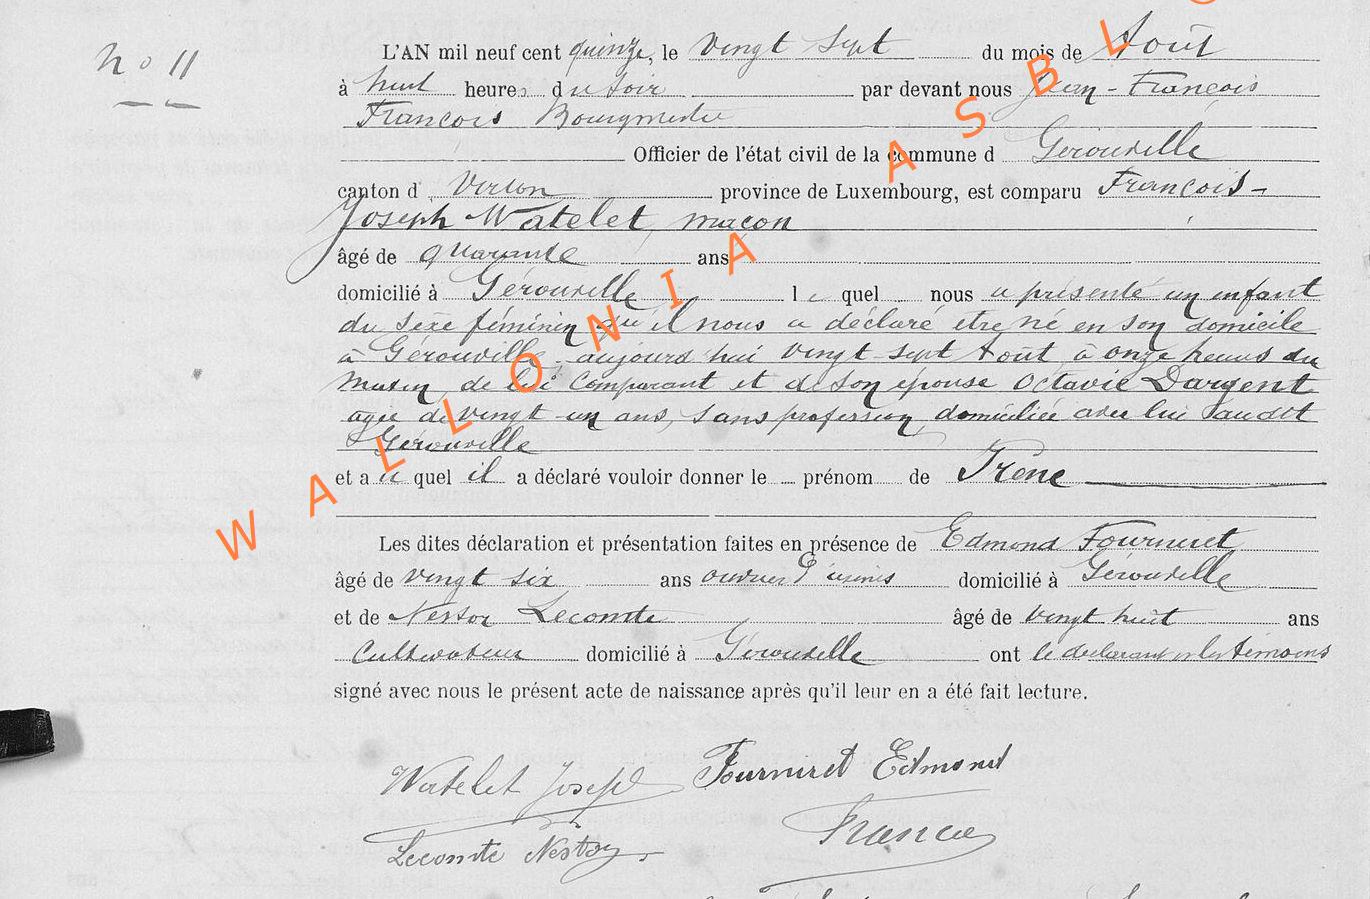 No 11
L'AN mil neuf cent quinze, le vingt sept du mois de Août
à huit heures du soir par devant nous Jean-François
François Bourgmestre
Officier de l'état civil de la commune d Gérouville
canton d Virton province de Luxembourg, est comparu François-
Joseph Watelet, maçon
âgé de quarante ans
domicilié à Gérouville le quel nous a présenté un enfant
du sexe féminin qu'il nous a déclaré être né en son domicile
à Gérouville aujourd'hui vingt-sept Août à onze heures du
matin de lui comparant et de son épouse Octavie Dargent
agée de vingt-un ans, sans profession, domiciliée avec lui audit
Gérouville
et au quel il a déclaré vouloir donner le prénom de Irène
Les dites déclaration et présentation faites en présence de Edmond Fourniret
âgé de vingt six ans ouvrier d'usines domicilié à Gérouville
et de Nestor Lecomte âgé de vingt huit ans
cultivateur domicilié à Gérouville ont le déclarant et les témoins
signé avec nous le présent acte de naissance après qu'il leur en a été fait lecture.
Watelet Joseph Fourniret Edmond
Lecomte Nestor
WALLONIA ASBL